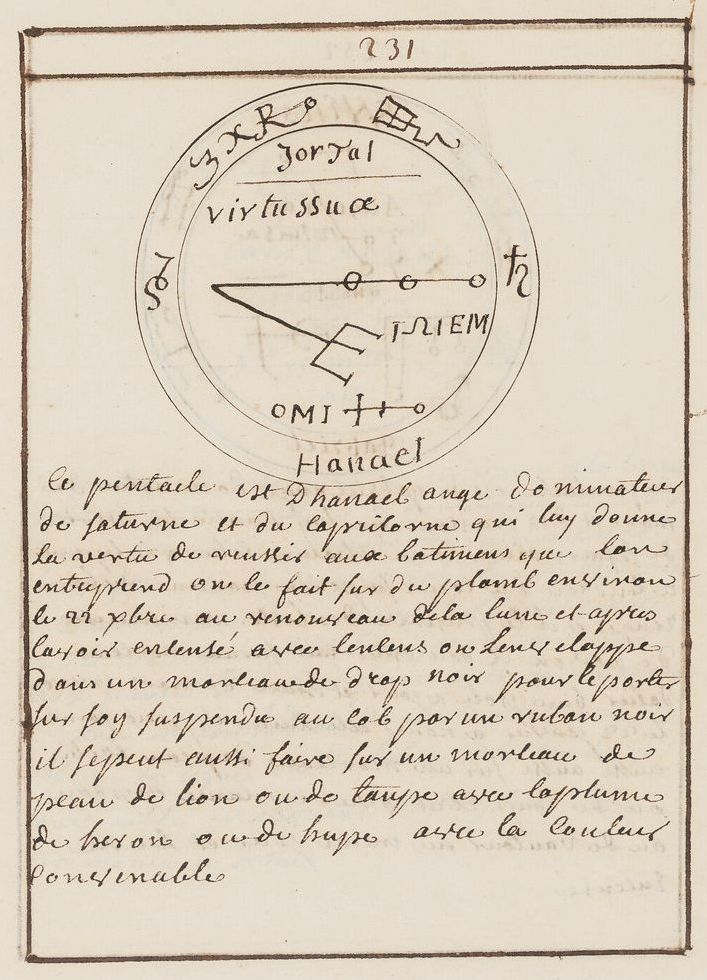 231
Jortal
virtussuæ
IΩIEM
OMI
Hanael
le pentacle est Dhanael ange dominateur
de saturne et du capricorne qui luy donne
la vertu de reussir aux batimens que lon
entreprend on le fait sur du plomb environ
le 22 xbre au renouveau dela lune et apres
lavoir encensé avec lencens on Lenveloppe
dans un morceau de drap noir pour le porter
sur soy suspendu au col par un ruban noir
il sepeut aussi faire sur un morceau de
peau de lion ou de taupe avec laplume
de heron ou de hupe avec la couleur
convenable